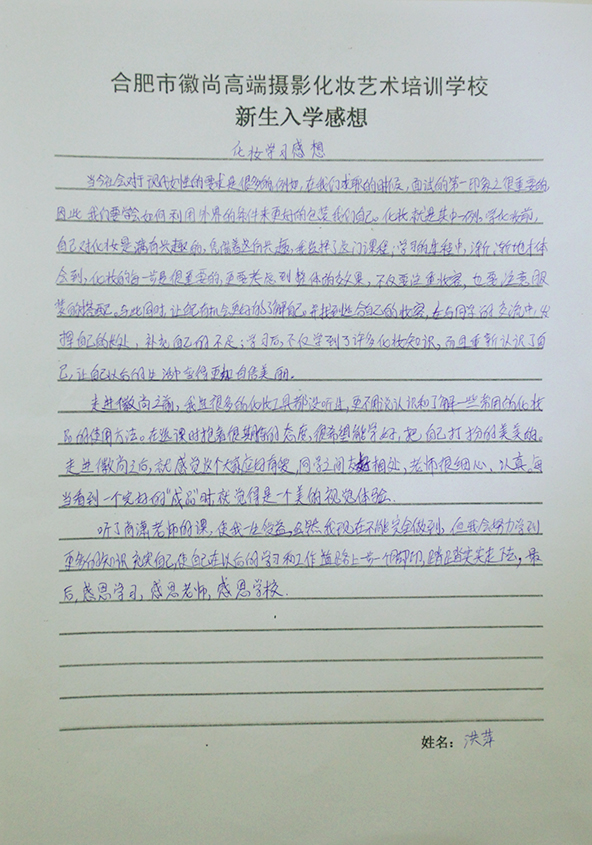 合肥市徽尚高端摄影化妆艺术培训学校
新生入学感想
化妆学习感想
当今社会对于现代女性的要求是很多的,例如,在我们求职的时候,面试的第一印象是很重要的,
因此我们要学会如何利用外界的条件来更好的包装我们自己。化妆就是其中一例,学化妆前,
自己对化妆是满有兴趣的,凭借着这向兴趣,我选择了这门课程,学习的过程中,渐渐地才体
会到,化妆的每一步是很重要的,更要考虑到整体的效果,不仅要注重妆容,也要注意服
装的搭配。与此同时,让自己有机会更好的了解自己。并找到适合自己的妆容,在与同学的交流中,发
挥自己的长处,补充自己的不足;学习后,不仅学到了许多化妆知识,而且重新认识了自
己,让自己以后的生活变得更加自信美丽。
走进徽尚之前,我连很多的化妆工具都没听过,更不用说认识和了解一些常用的化妆
品的使用方法。在选课时抱着很期待的态度,很希望能学好,把自己打扮的美美的。
走进徽尚之后,就感觉这个大家庭好有爱,同学之间友好相处,老师很细心、认真,每
当看到一个完好的"成品"时就觉得是一个美的视觉体验.
听了商潇老师的课,使我一生受益,虽然我现在不能完全做到,但我会努力学到
更多的知识充实自己,使自己在以后的学习和工作道路上一步一个脚印,踏踏实实走下去。最
后,感恩学习,感恩老师,感恩学校.
姓名:洪萍